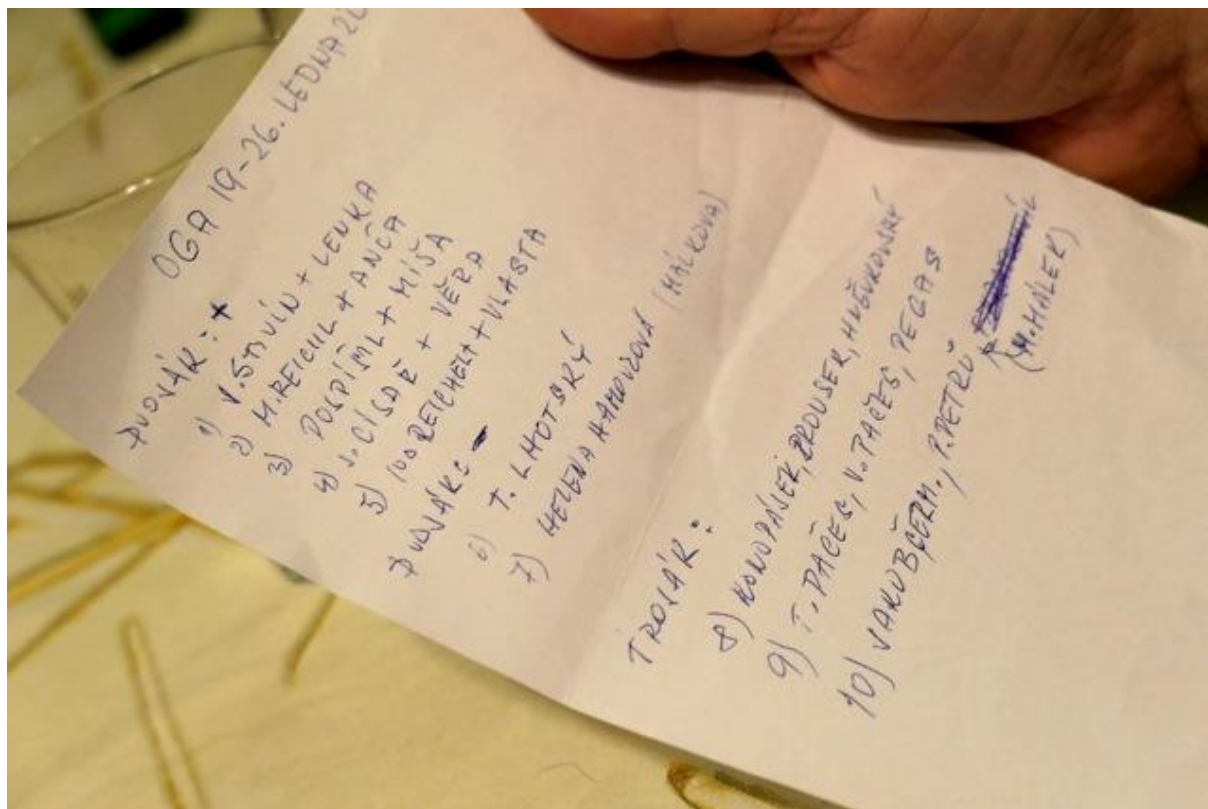 OGA 19-26. LEDNA 20
DVOJÁK: +
1) V. STIVÍN + LENKA
2) M. REICHL + ANČA
3) POSPÍŠIL + MÍŠA
4) J. CÍSAŘ + VĚRA
5) REICHELT + VLASTA
DVOJÁK: -
6) T. LHOTSKÝ
7) HELENA (HÁLKOVA)
TROJÁK:
8) KONOPÁSEK, BROUSER,
9) T. PAČES, V. PAČES, PEGAS
10) JAKUB ČERM., P. PETRŮ
(M. HÁLEK)